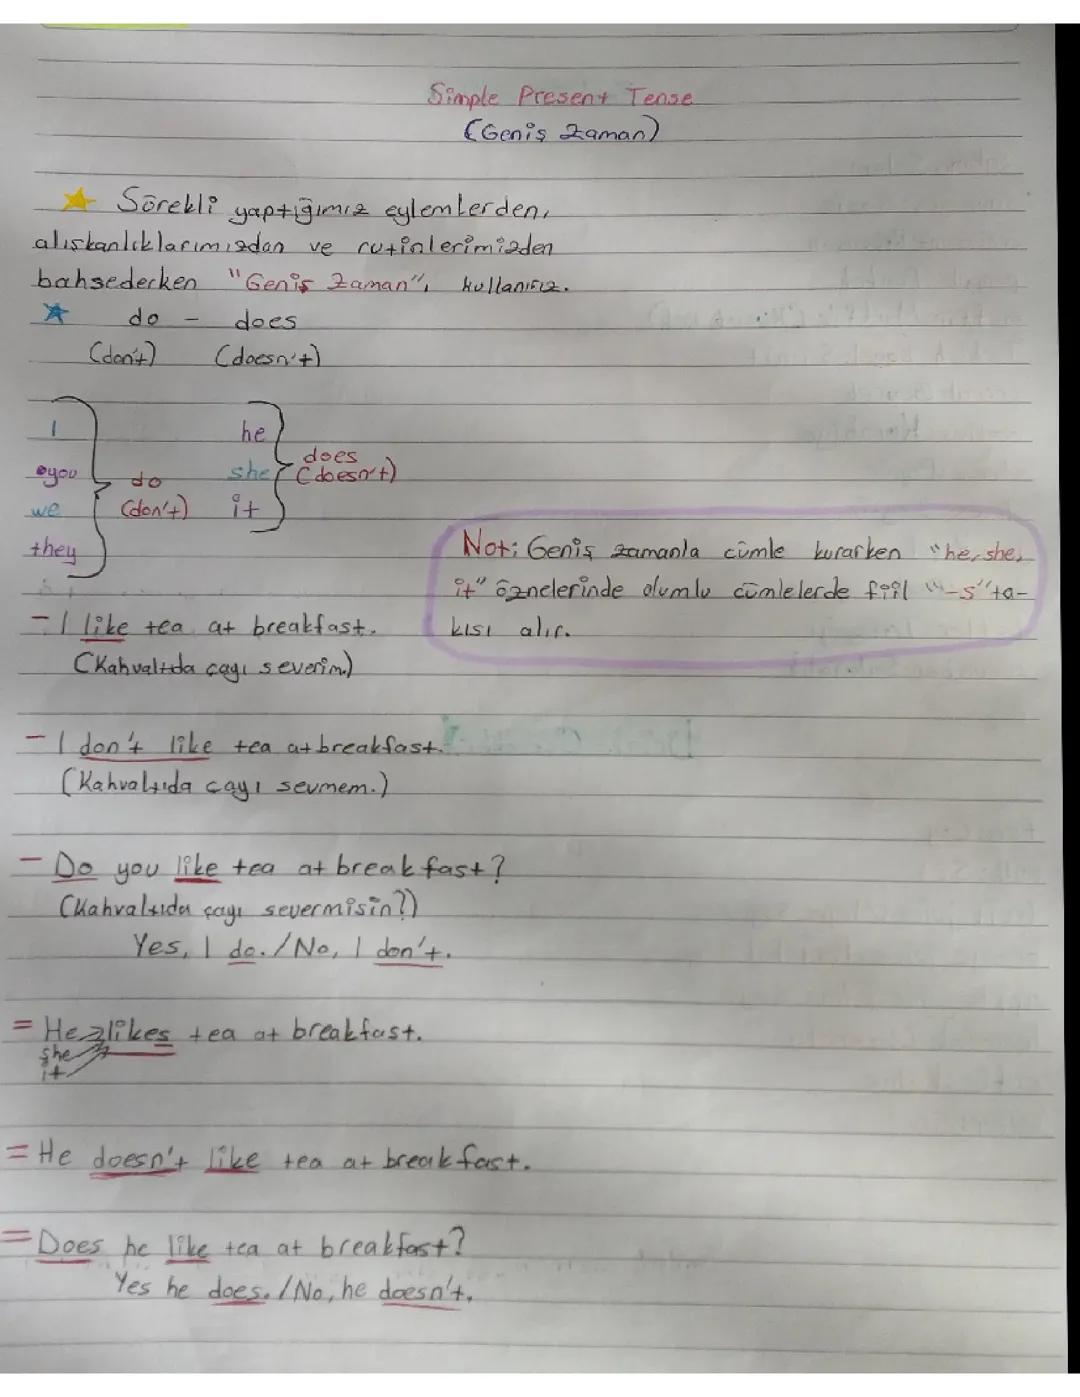 Simple Present Tense
(Geniş Zaman)
Sürekli yaptığımız eylemlerden,
alışkanlıklarımızdan ve rutinlerimizden
bahsederken "Geniş Zaman", kullanırız.
do - does
(don't) (doesn't)
I
you
we
they
do
(don't)
he
she
it
does
(doesn't)
Not: Geniş zamanla cümle kurarken "he, she,
it" öznelerinde olumlu cümlelerde fiil "-s" ta-
kısı alır.
- I like tea at breakfast.
(Kahvaltıda çayı severim.)
- I don't like tea at breakfast.
(Kahvaltıda çayı sevmem.)
- Do you like tea at breakfast?
(Kahvaltıda çayı severmisin?)
Yes, I do. / No, I don't.
= He likes tea at breakfast.
she
it
= He doesn't like tea at breakfast.
= Does he like tea at breakfast?
Yes he does. / No, he doesn't.